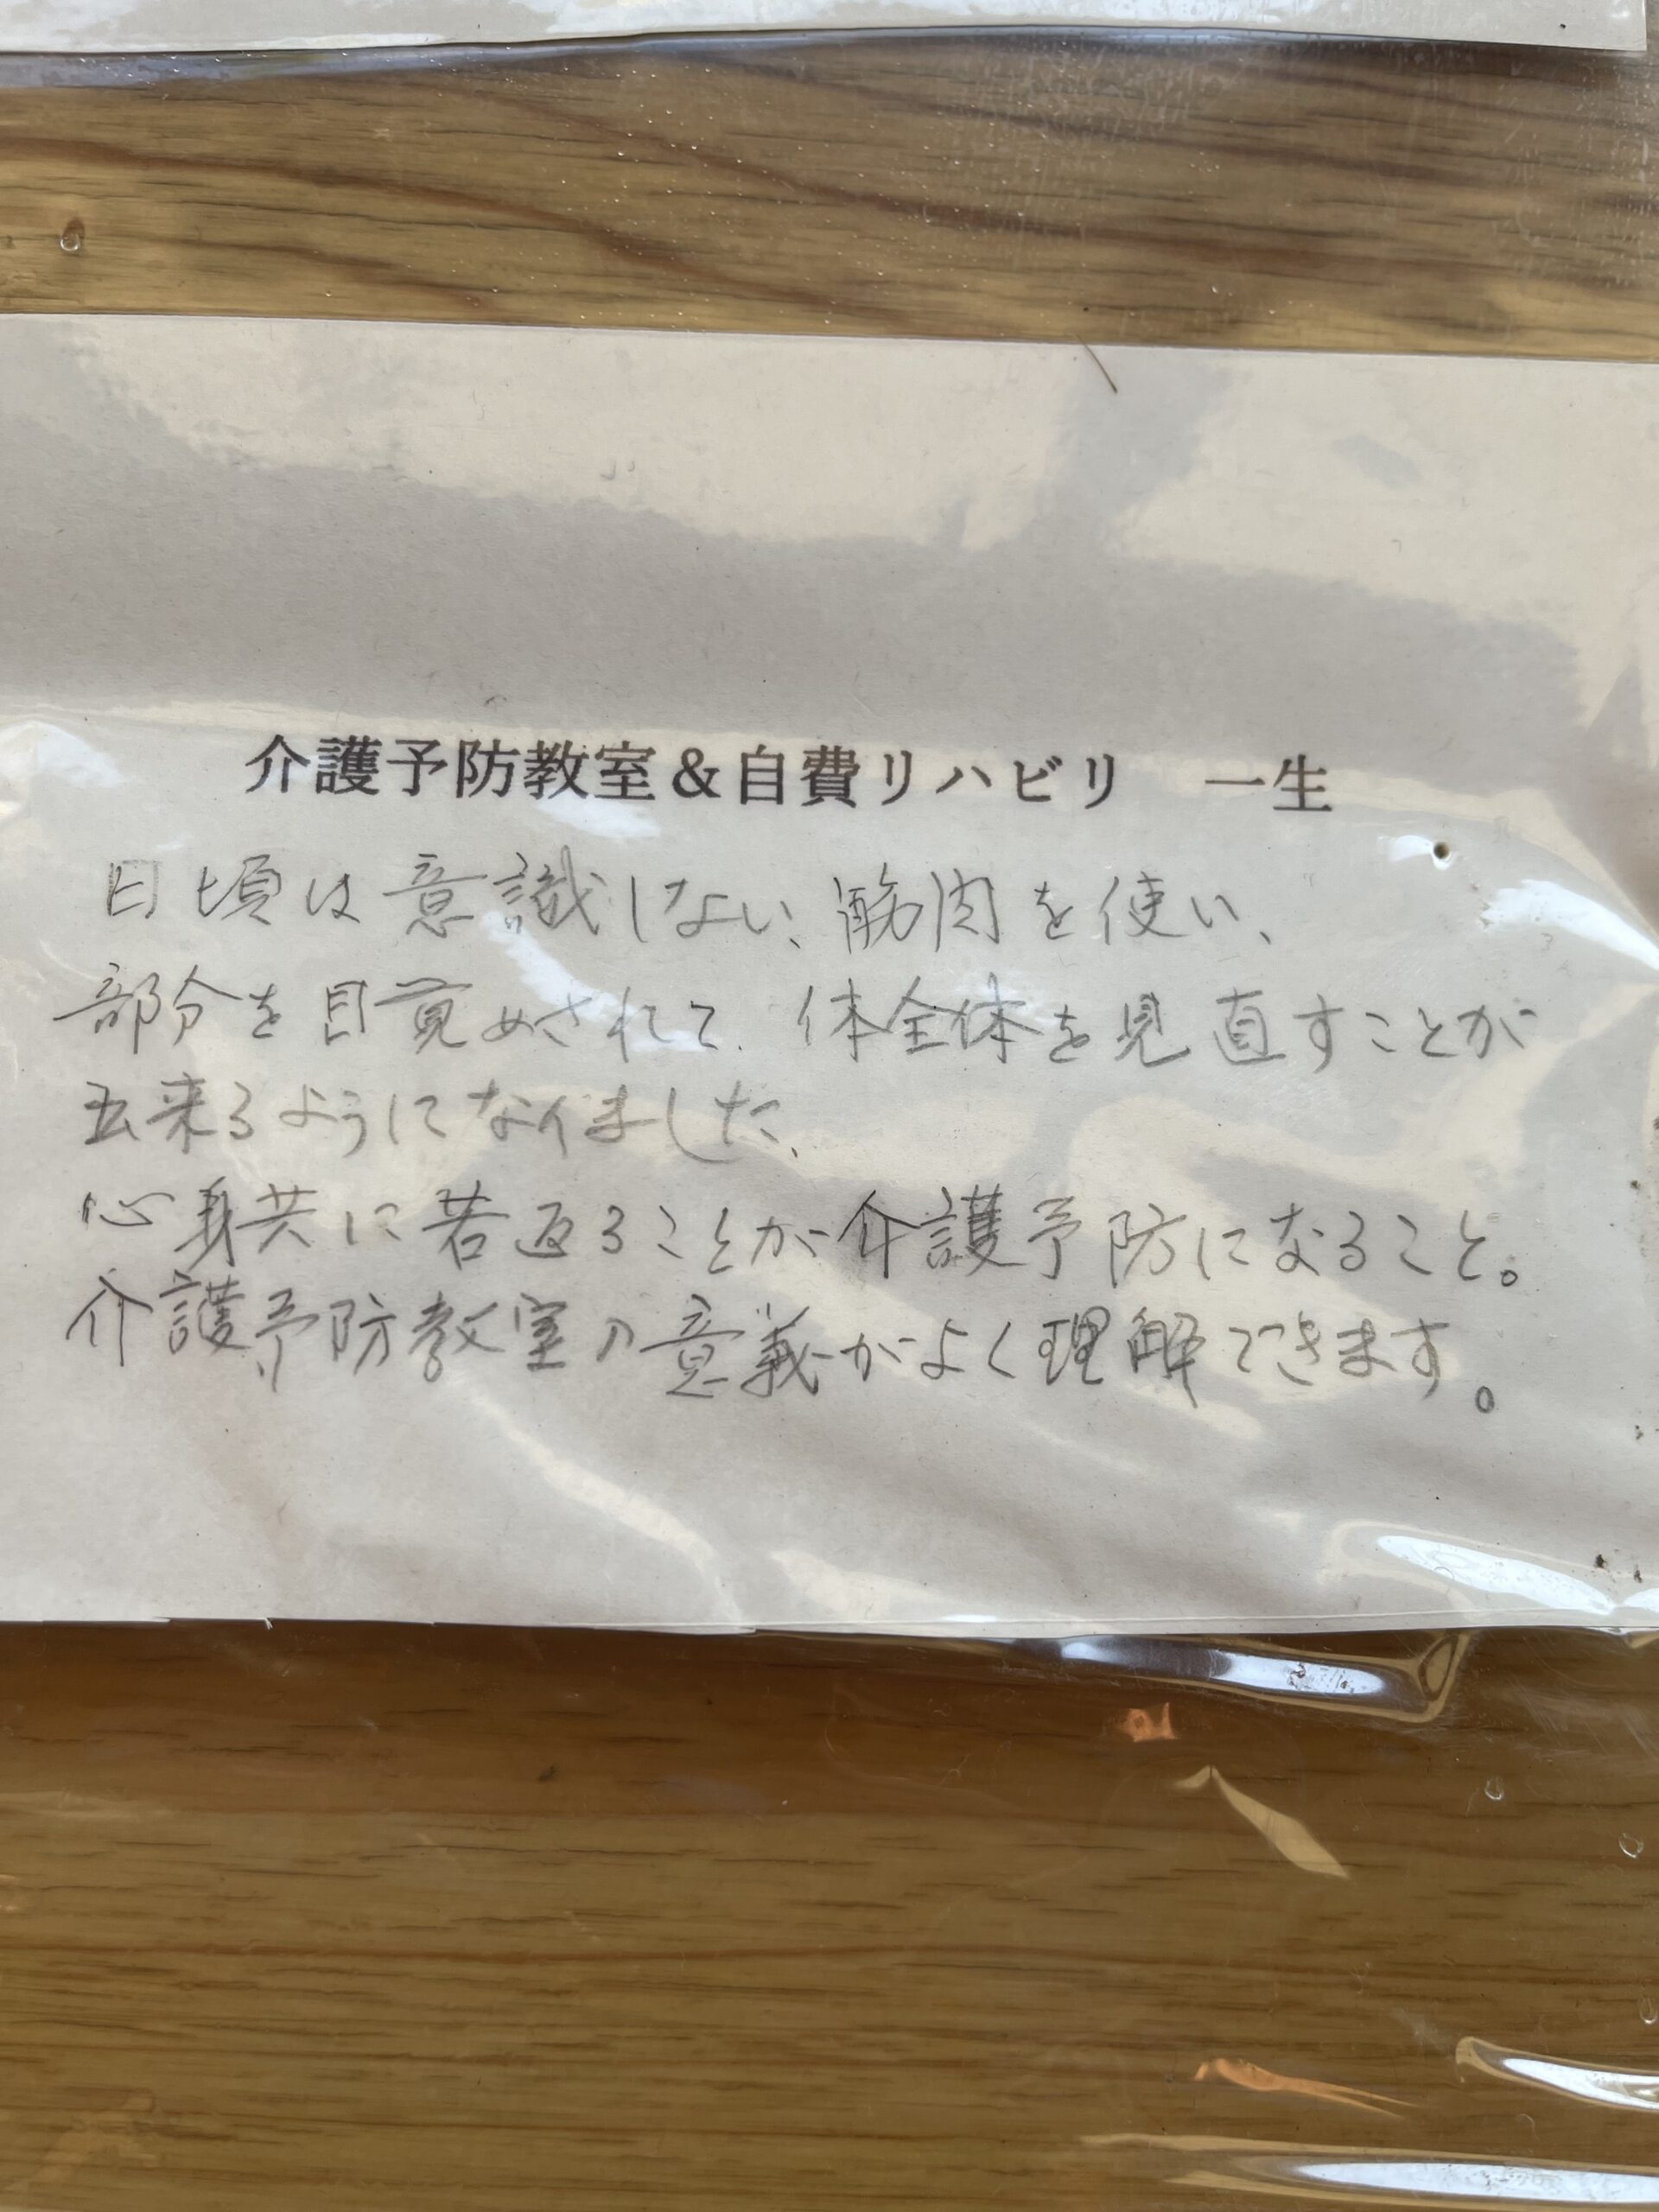 介護予防教室＆自費リハビリ　一生
日頃は意識しない、筋肉を使い、
部分を目覚めされて、体全体を見直すことが
出来るようになりました、
心身共に若返ることが介護予防になること。
介護予防教室の意義がよく理解できます。